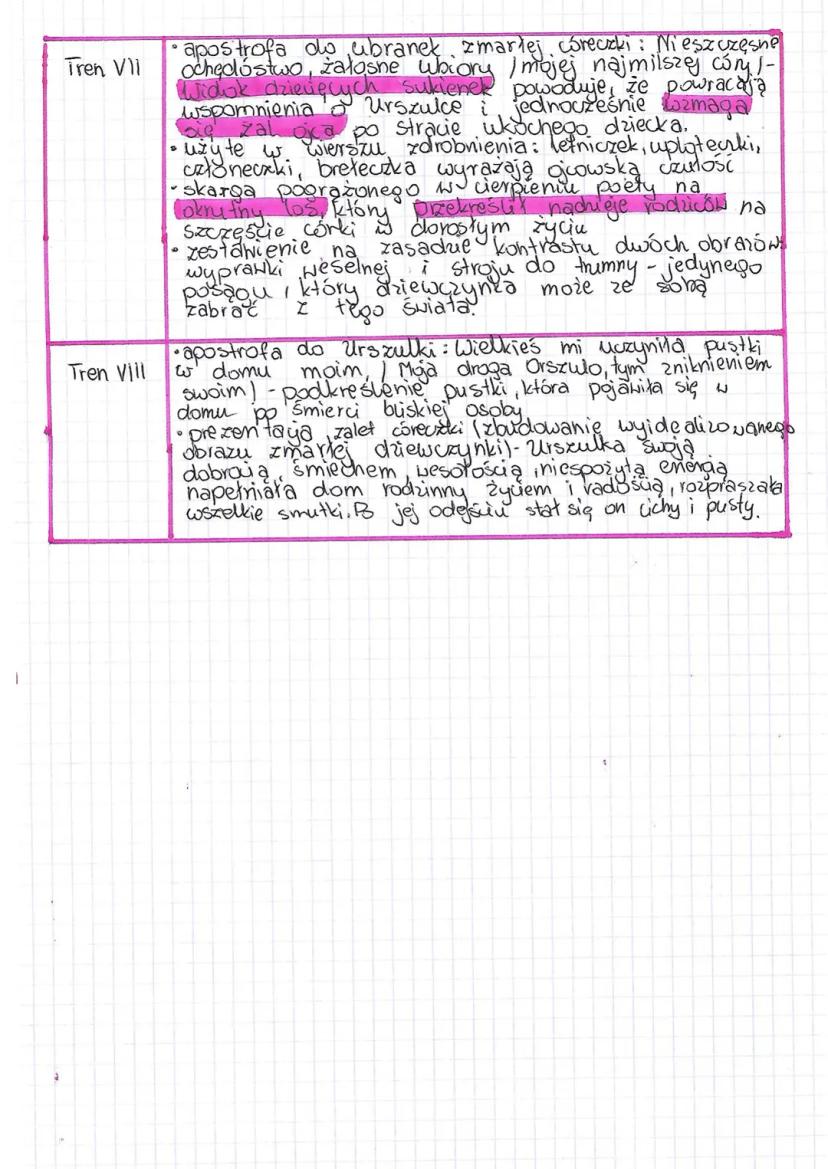 Tren VII
• apostrofa do ubranek zmarłej córeczki: Nieszczęsne
ochędóstwo, żałosne ubiory / mojej najmilszej córy /-
Widok dziecięcych sukienek powoduje, że powracają
wspomnienia o Urszulce i jednocześnie wzmaga
się żal ojca po stracie ukochego dziecka.
• użyte w wierszu zdrobnienia: letniczek, uploteczki,
członeczki, breteczka wyrażają ojcowską czułość
• skarga pogrążonego w cierpieniu poety na
okrutny los, który przekreślił nadzieje rodziców na
szczęście córki w dorosłym życiu
• zestawienie na zasadzie kontrastu dwóch obrazów
wyprawki weselnej i stroju do trumny - jedynego
posagu, który dziewczynka może ze sobą
zabrać z tego świata.
Tren VIII
• apostrofa do Urszulki: Wielkieś mi uczyniła pustki
w domu moim, / Moja droga Orszulo, tym zniknieniem
swoim / - podkreślenie pustki, która pojawiła się w
domu po śmierci bliskiej osoby
• prezentacja zalet córeczki (zbudowanie wyidealizowanego
obrazu zmarłej dziewczynki) - Urszulka swoją
dobrocią, śmiechem, wesołością, niespożytą energią
napełniała dom rodzinny życiem i radością, rozpraszała
wszelkie smutki. Po jej odejściu stał się on cichy i pusty.